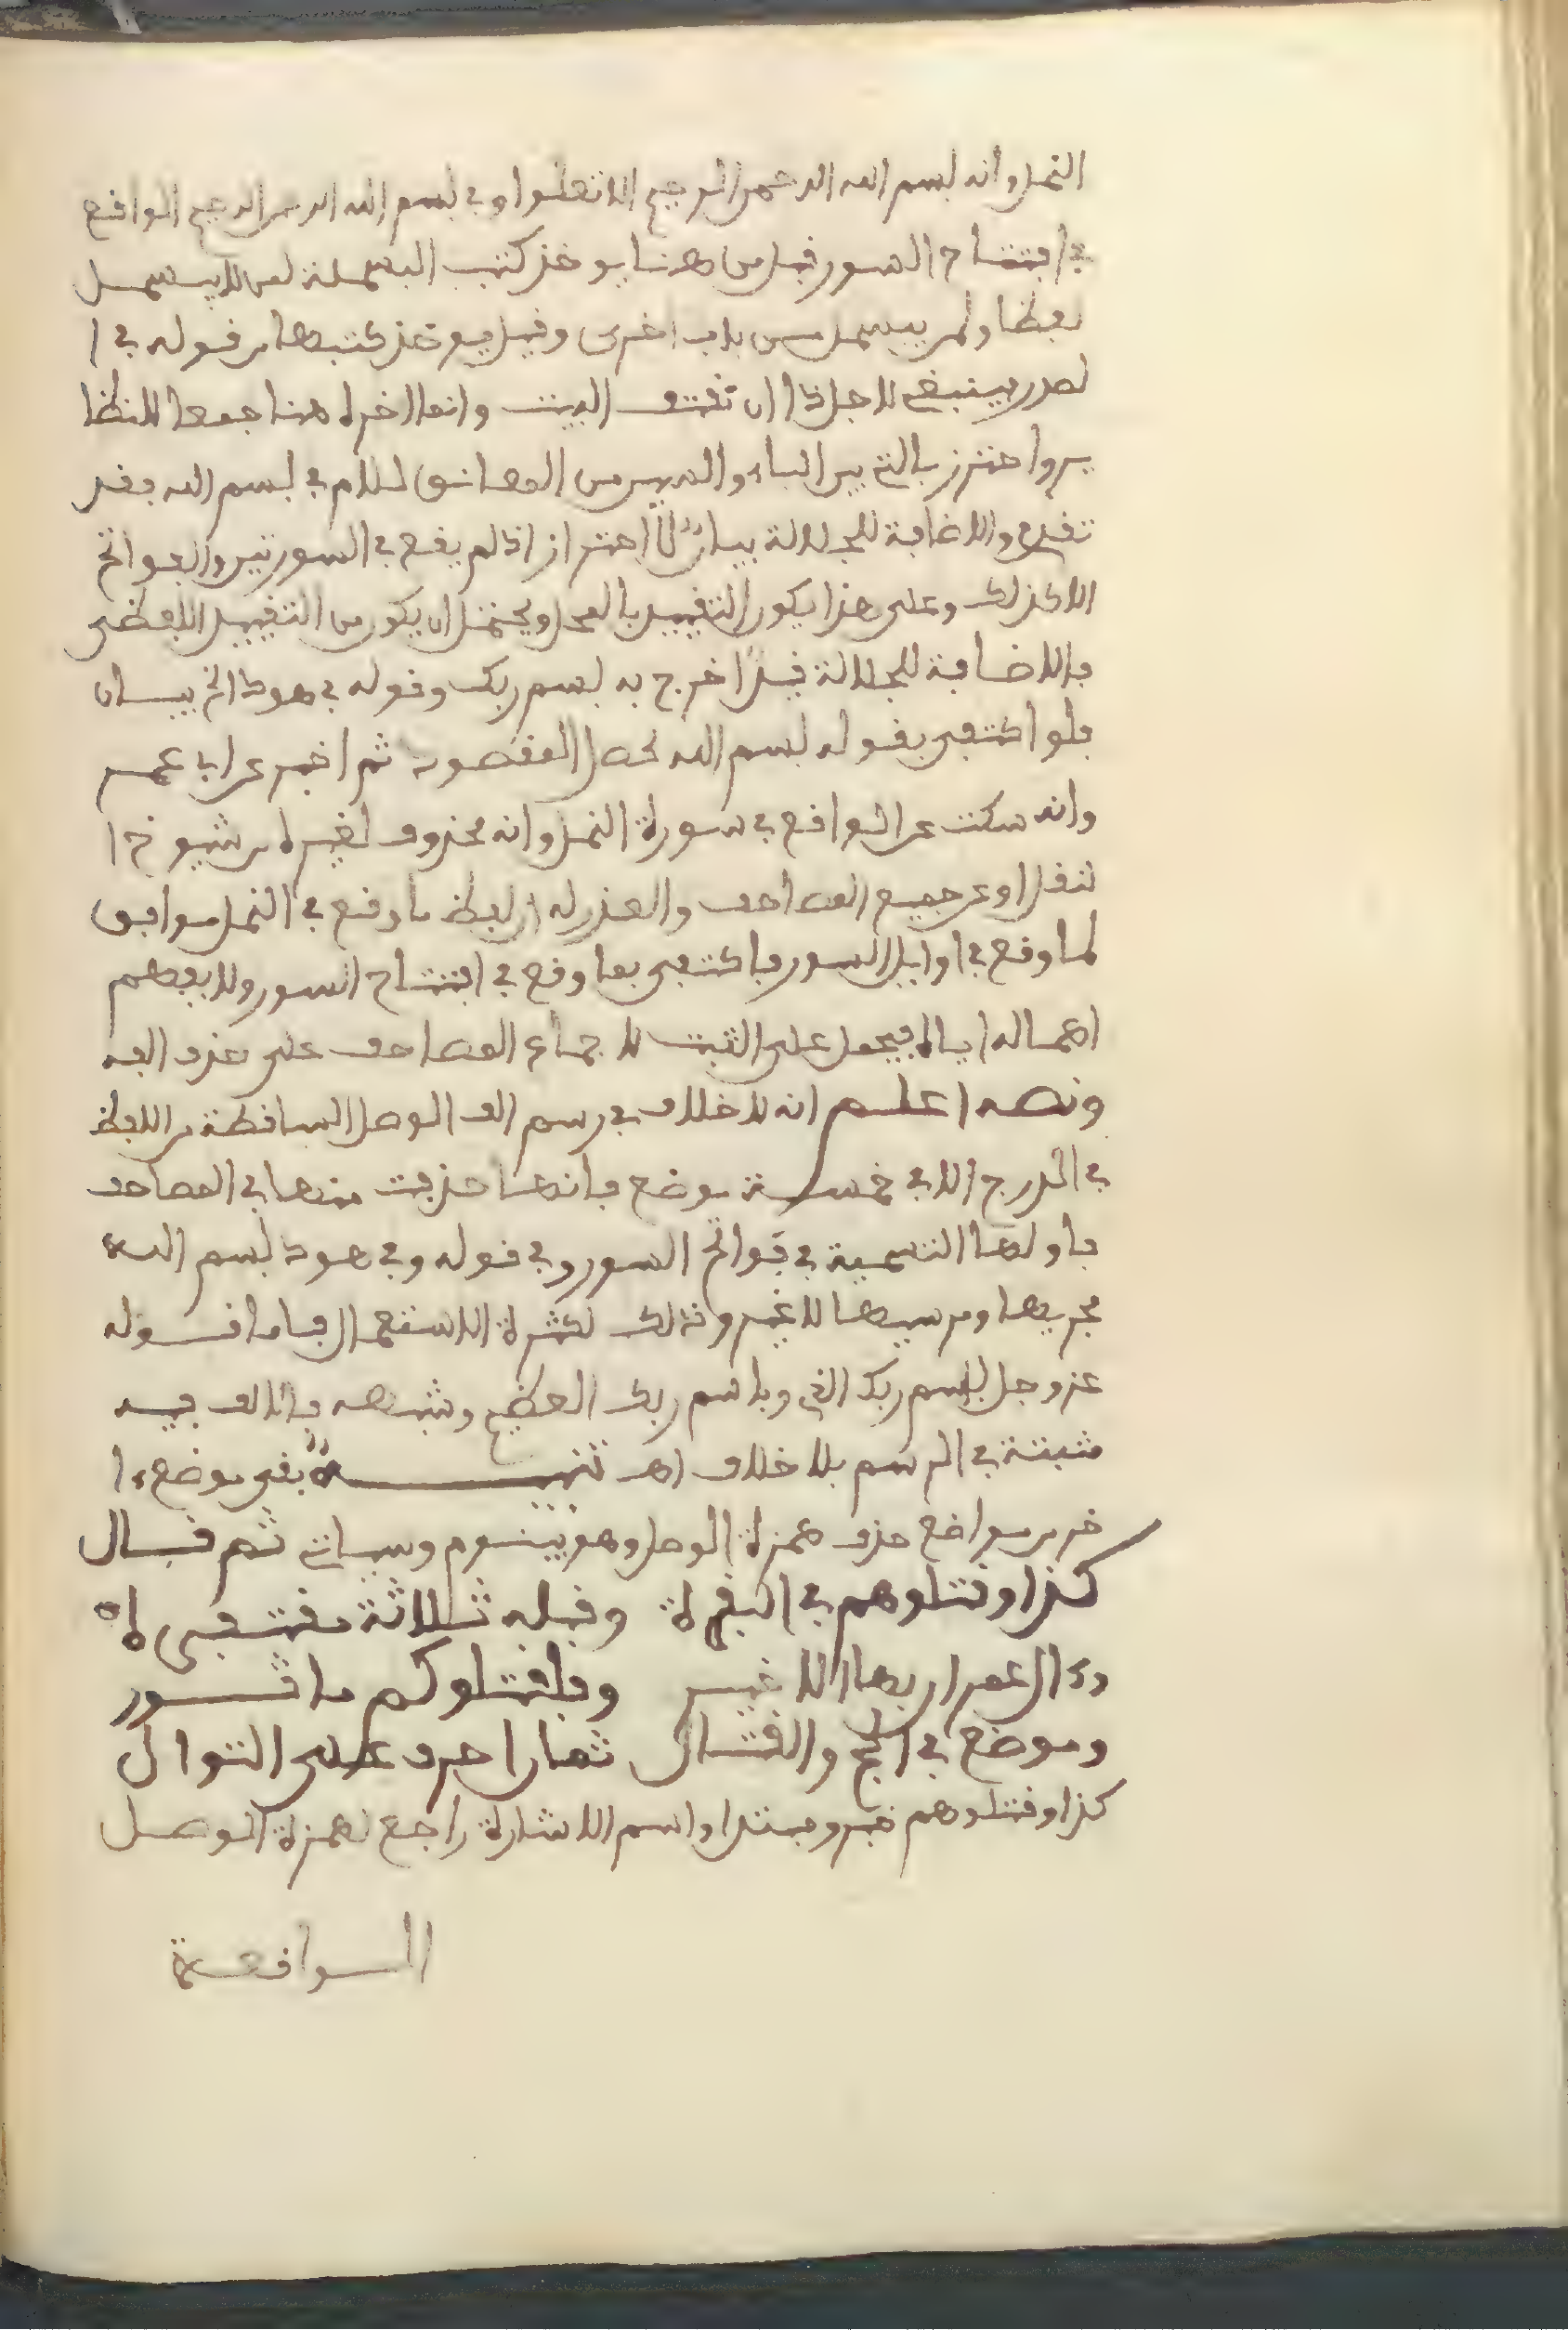 النمل وانه لبسم الله الرحمن الرحيم الا تعلوا وفي لبسم الله الرحمن الرحيم الواقع
في افتتاح السور قيل من هنا يوخذ كتب البسملة لمن لا يبسمل
لفظا ولم يبسمل من باب اخرى وقيل يوخذ كتبها من قوله في ا
لصدر فينبغي لاجل ذا ان نقتف البيت وانما اخره هنا جمعا للنظا
ير واحترز بالتي بين الباء والسين من المعانق للام في لبسم الله فقد
تقدم والاضافة للجلالة بيان لا احتراز اذ لم يقع في السورتين والفواتح
الا كذلك وعلى هذا يكون التقييد بالمحل ويحتمل ان يكون من التقييد اللفظي
بالاضافة للجلالة فيكون اخرج به بسم ربك وقوله في هود الخ بيان
فلو اكتفى بقوله لبسم الله لحصل المقصود ثم اخبر عن ابي عمر
وانه سكت عن الواقع في سورة النمل وانه محذوف لغيره من شيوخ ا
لنقل او عن جميع المصاحف والعذر له ان لفظ ما وقع في النمل موافق
لما وقع في اوايل السور فاكتفى بما وقع في افتتاح السور ولا يفهم
اهماله اياه فيحمل على الثبت لاجماع المصاحف على حذف الفه
ونصه اعلم انه لا خلاف في رسم الف الوصل الساقطة من اللفظ
في الدرج الا في خمسة موضع فانها حذفت منها في المصاحف
فاولها التسمية في فواتح السور وفي قوله وفي هود لبسم الله
مجريها ومرسيها لا غير وذلك لكثرة الاستعمال فاما قوله
عز وجل باسم ربك الذي وباسم ربك العظيم وشبهه فالالف فيه
مثبتة في الرسم بلا خلاف اهـ تنبيه بقي موضع ا
خر من مواضع حذف همزة الوصل وهو يبنؤم وسياتي ثم قال
كذا وقتلوهم في البقرة وقبله ثلاثة مقتفى اه
وءال عمران بها الاخير وفلقتلوكم ماثور
وموضع في الحج والقتال ثمان احرف على التوال
كذا وقتلوهم خبر ومبتدا واسم الاشارة راجع لهمزة الوصل
الواقعة